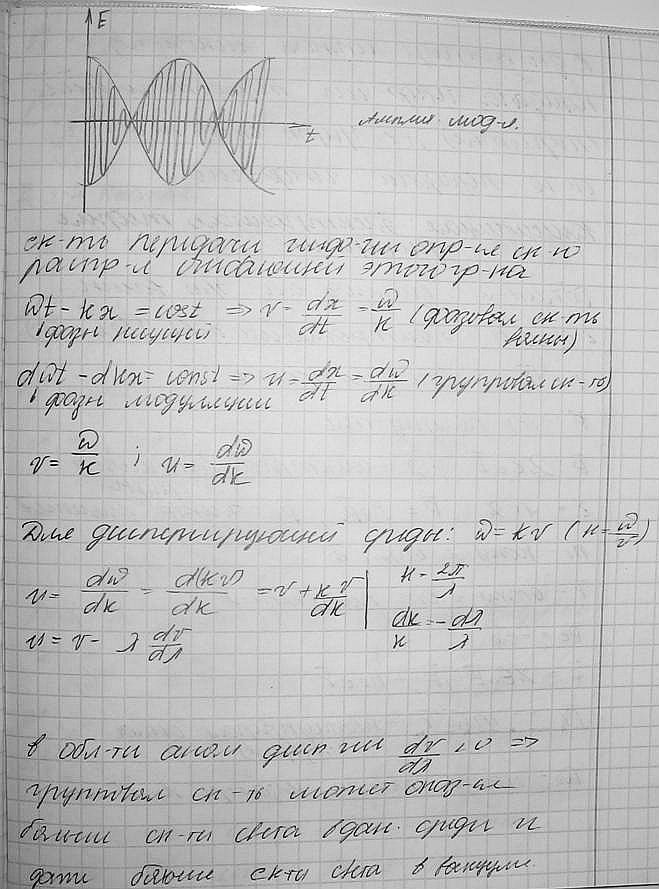 E
t
Амплит. мод-я.
ск-ть передачи инфо-ии опр-ся ск-ю
распр-я огибающей этого гр-на
ω̄t - кx = const ⇒ v = dx/dt = ω̄/к (фазовая ск-ть
фазы несущей волны)
dωt - dкx = const ⇒ u = dx/dt = dω̄/dк (групповая ск-ть)
фазы модуляции
v = ω̄/к ; u = dω̄/dк
Для диспергирующей среды: ω̄ = кv (к = ω̄/v)
u = dω̄/dк = d(кv)/dк = v + к v/dк | к = 2π/λ
u = v - λ dv/dλ dк/к = - dλ/λ
в обл-ти аном дисп-ии dv/dλ < 0 ⇒
групповая ск-ть может оказ-ся
больше ск-ти света в дан. среде и
даже больше ск-ти света в вакууме.